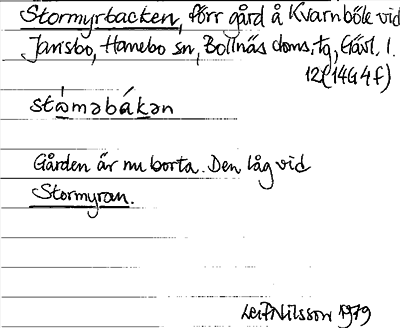 Stormyrbacken, förr gård å Kvarnböle vid
Jansbo, Hanebo sn, Bollnäs doms:tg, Gävl. l.
12(14G4f)
stⱥ̀məbákən
Gården är nu borta. Den låg vid
Stormyran.
Leif Nilsson 1979